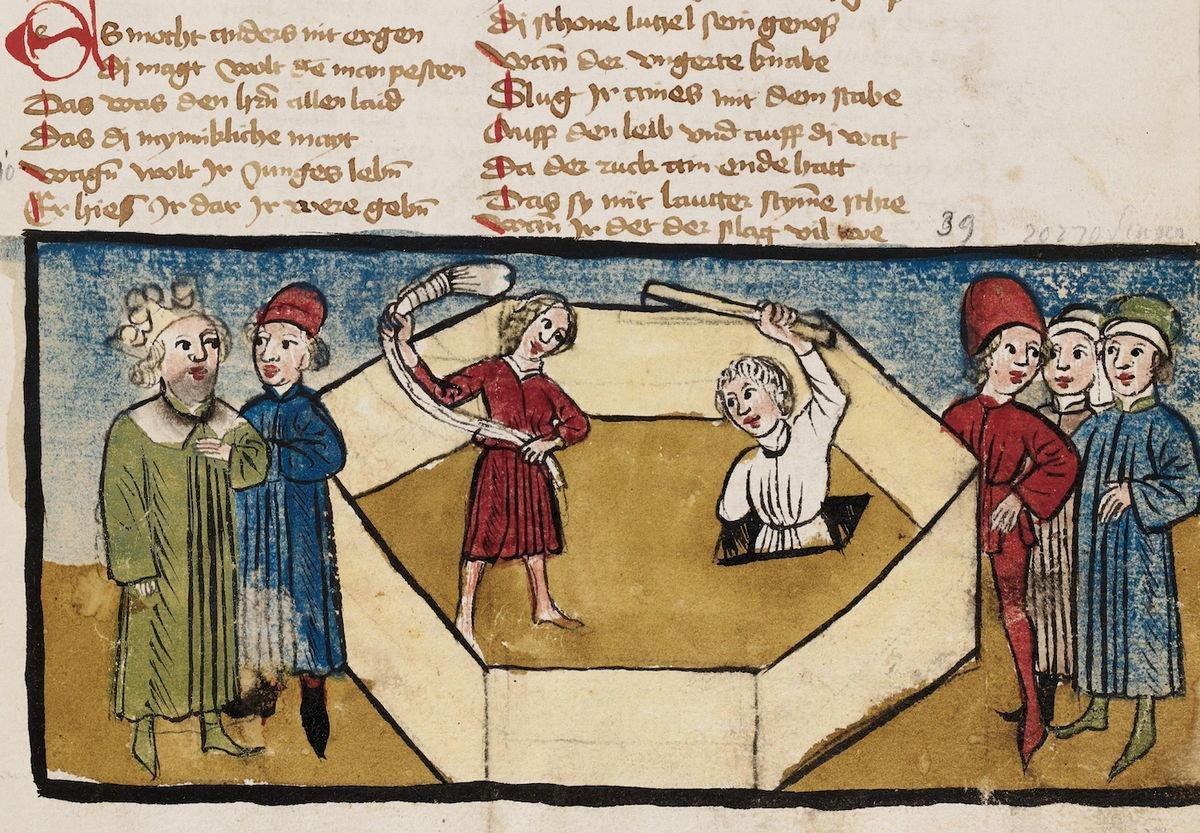 Es mocht anders nit ergen
Di magt wolt dē man pesten
Das was den hrn̄ allen laid
Das di mynnikliche mayt
Wagn̄ wolt Jr Junges lebn̄
Er hies Jr dar Jr were gebn̄
Di schone lutzel sein genoß
Wan̄ der vngerte knabe
Slug Jr aines mit dem stabe
Auff den leib vnd auff di wat
Da der ruck ain ende hatt
Das sy mit lautter stym̄e schre
Wan̄ Jr det der slag vil we
39